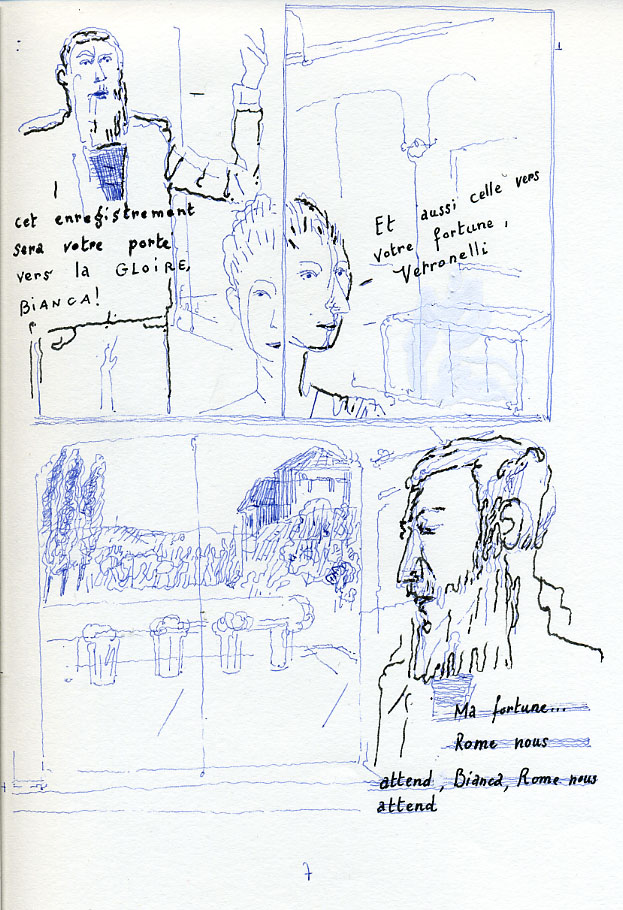 cet enregistrement
sera votre porte
vers la GLOIRE,
BIANCA!
Et aussi celle vers
votre fortune,
Verronelli
Ma fortune...
Rome nous
attend, Bianca, Rome nous
attend
7